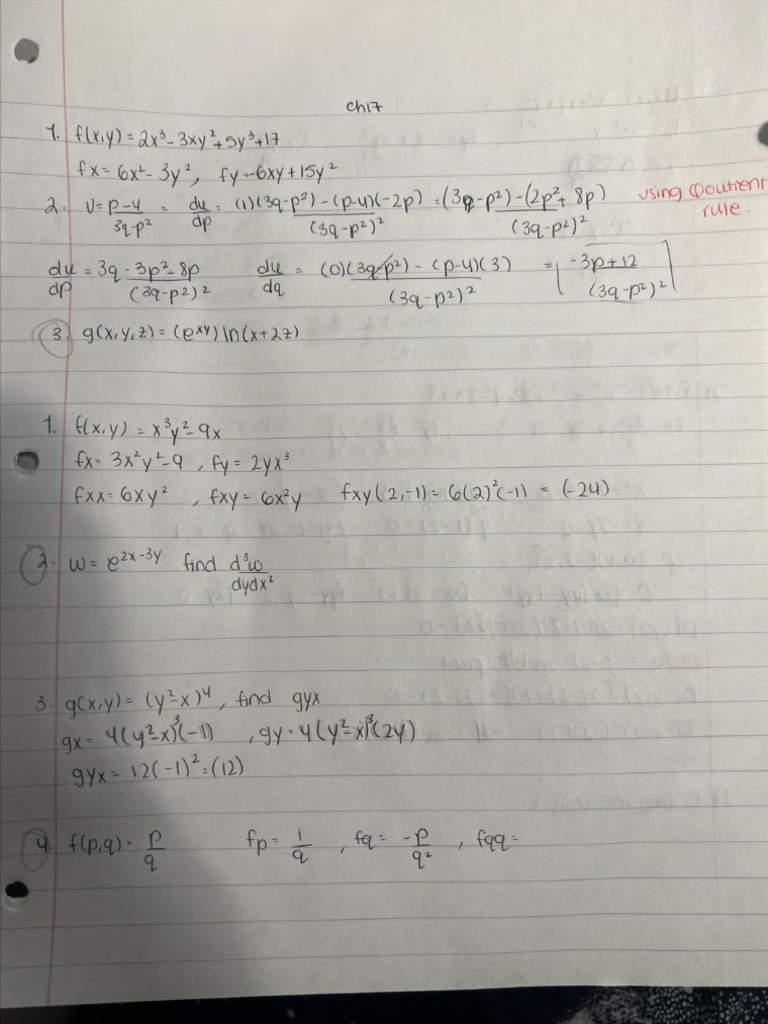 Ch17
1. f(x,y) = 2x³ - 3xy² + 5y³ + 17
fx = 6x² - 3y², fy = -6xy + 15y²
2. U = p-4/3q-p² = du/dp = (1)(3q-p²) - (p-4)(-2p)/(3q-p²)² = (3q-p²) - (2p² + 8p)/(3q-p²)² using Quotient rule.
du/dp = 3q - 3p² - 8p/(3q-p²)² du/dq = (0)(3q-p²) - (p-4)(3)/(3q-p²)² = -3p+12/(3q-p²)²
3. g(x,y,z) = (e^xy) ln(x+2z)
1. f(x,y) = x³y² - 9x
fx = 3x²y² - 9, fy = 2yx³
fxx = 6xy², fxy = 6x²y fxy(2,-1) = 6(2)²(-1) = (-24)
2. w = e^2x-3y find d³w/dydx²
3. g(x,y) = (y²-x)⁴, find gyx
gx = 4(y²-x)³(-1), gy = 4(y²-x)³(2y)
gyx = 12(-1)² = (12)
4. f(p,q) = p/q fp = 1/q, fq = -p/q², fqq =